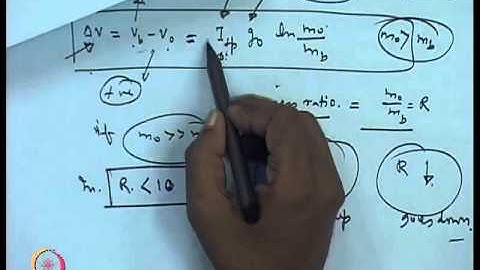 ΔV = V_b - V_o = I_sp g_o ln m_o/m_b   m_o > m_b
+ve
ratio. = m_o/m_b = R
if m_o >>
R < 10
R ↓
goes down